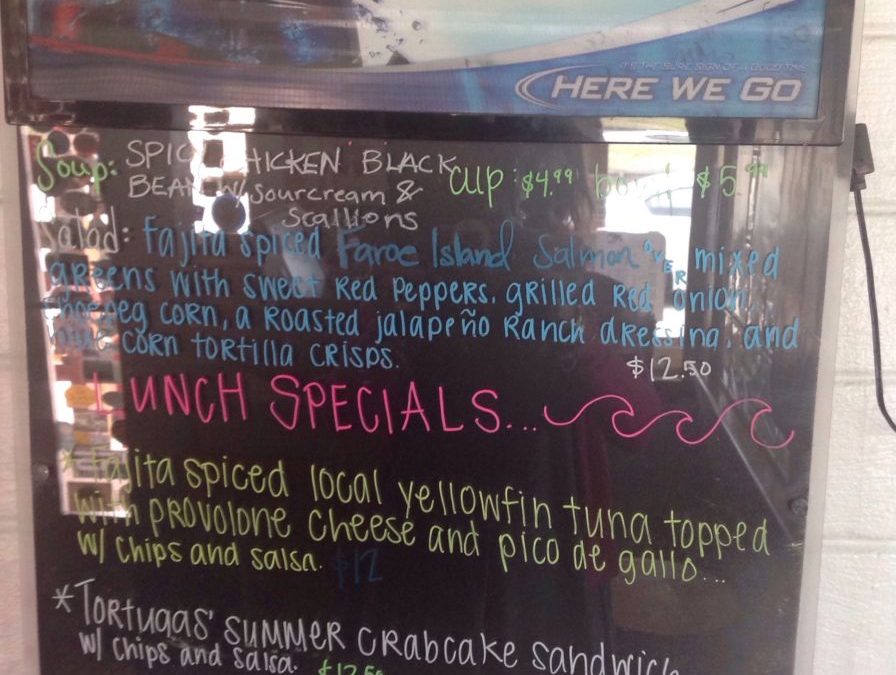 IT'S THE SURE SIGN OF A GOOD TIME
HERE WE GO
Soup: SPICY CHICKEN BLACK
BEAN w/ sourcream &
Scallions
cup: $4.99 bowl: $5.99
Salad: Fajita spiced Faroe Island Salmon over mixed
greens with sweet Red Peppers, grilled Red onion,
shoepeg corn, a Roasted jalapeño Ranch dressing, and
corn tortilla crisps.
$12.50
LUNCH SPECIALS...
* Fajita spiced local yellowfin tuna topped
with provolone cheese and pico de gallo...
w/ chips and salsa. $12
* Tortugas' summer crabcake sandwich
w/ chips and salsa. $12.50